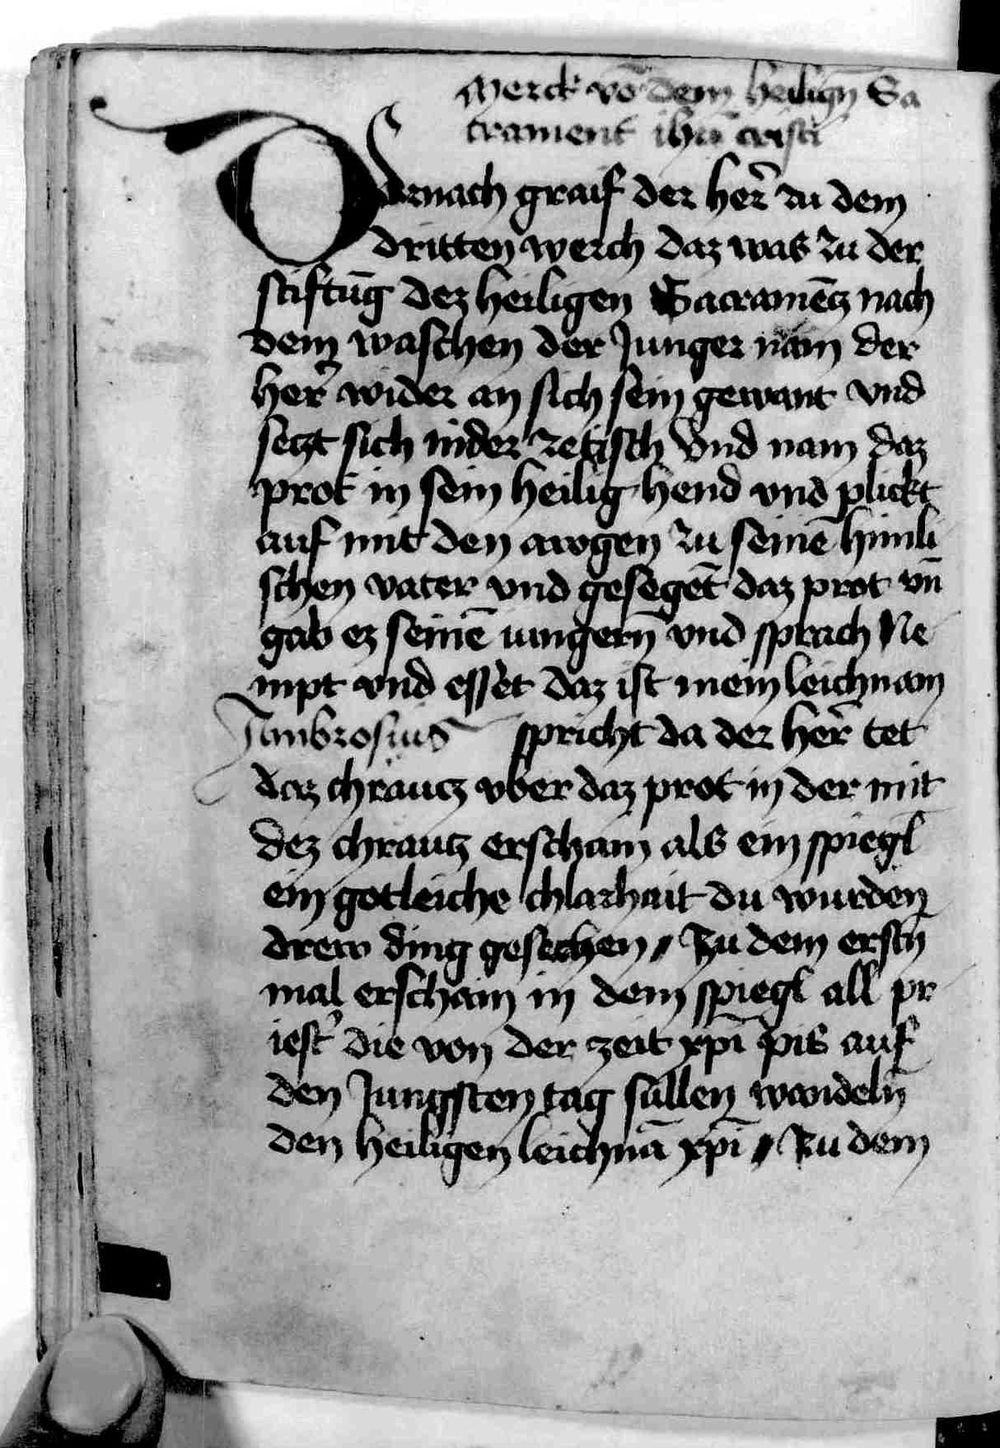 Merck vō dem heiligñ Sa
crament ihū cristi
Darnach graif der her̄ zu dem
dritten werch daz was zu der
stiftūg dez heiligen Sacramētz nach
dem waschen der Junger nam der
her̄ wider an sich sein gewant vnd
seczt sich nider ze tisch Vnd nam daz
prot in sein heilig hend vnd plickt
auf mit den awgen zu seinē himli
schen vater vnd gesegēt daz prot vn̄
gab ez seinē iungern̄ vnd sprach Ne
mpt vnd esset daz ist mein leichnam
Ambrosius spricht da der her̄ tet
daz chraucz vber daz prot in der mit
dez chrautz erscham als ein spiegl
ein gotleiche chlarhait du wurden
drew ding gesechen // Zu dem erstn
mal erschain in dem spiegl all pr
iest' die von der zeit xpī pis auf
den Jungsten tag sullen wandeln̄
den heiligen leichnā xpī // Zu dem